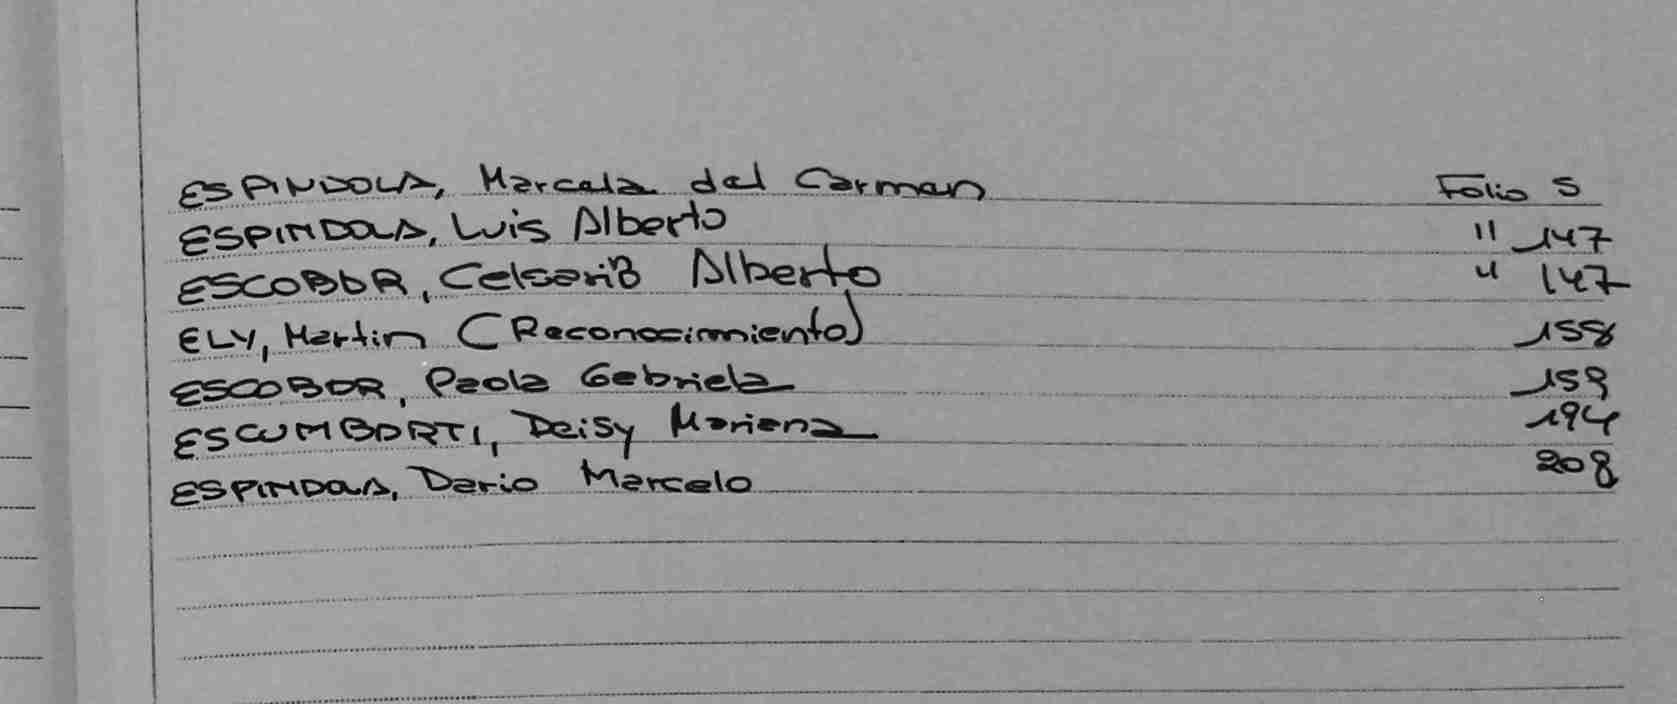 ESPINDOLA, Marcela del Carmen Folio 5
ESPINDOLA, Luis Alberto " 147
ESCOBAR, Alberto " 147
ELY, Martin (Reconocimiento) 158
ESCOBAR, Paola Gabriela 159
ESCUMBARTI, Deisy Mariana 194
ESPINDOLA, Dario Marcelo 208